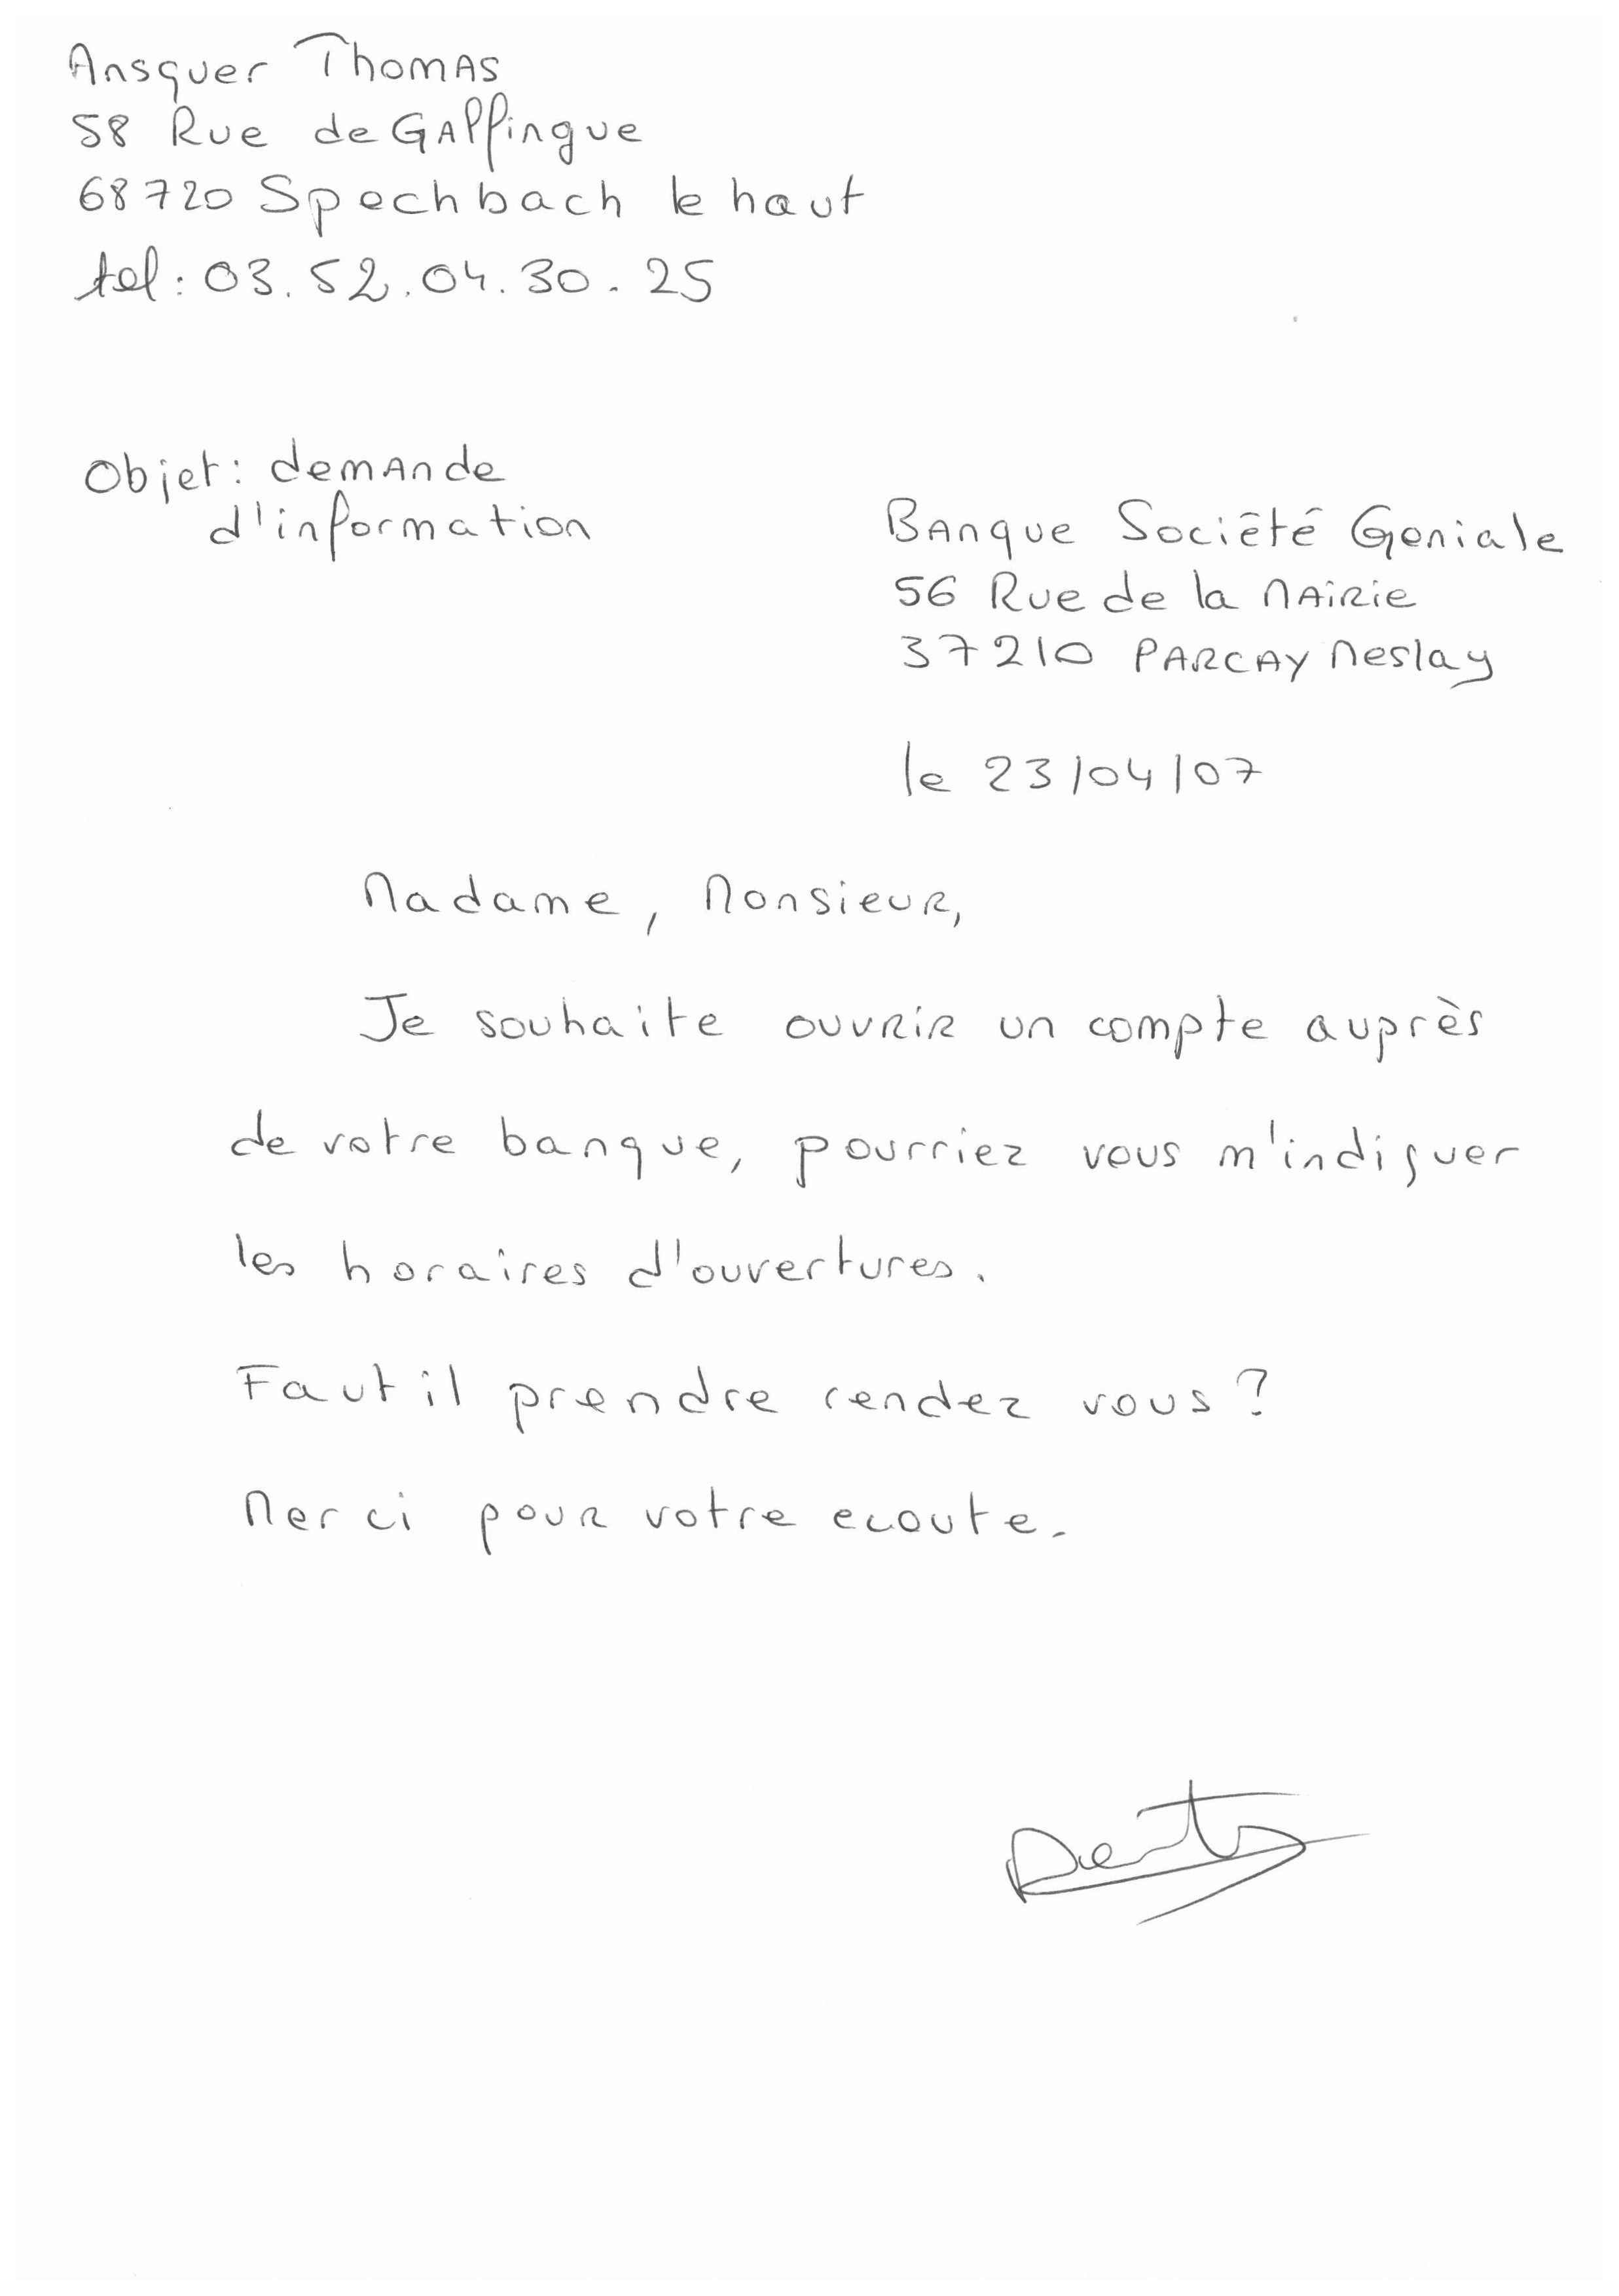 Ansquer Thomas
58 Rue de Galfingue
68720 Spechbach le haut
tel: 03.52.04.30.25
Objet: demande
d'information
Banque Société Geniale
56 Rue de la Mairie
37210 PARCAY Meslay
le 23/04/07
Madame, Monsieur,
Je souhaite ouvrir un compte auprès
de votre banque, pourriez vous m'indiquer
les horaires d'ouvertures.
Faut il prendre rendez vous?
Merci pour votre ecoute.